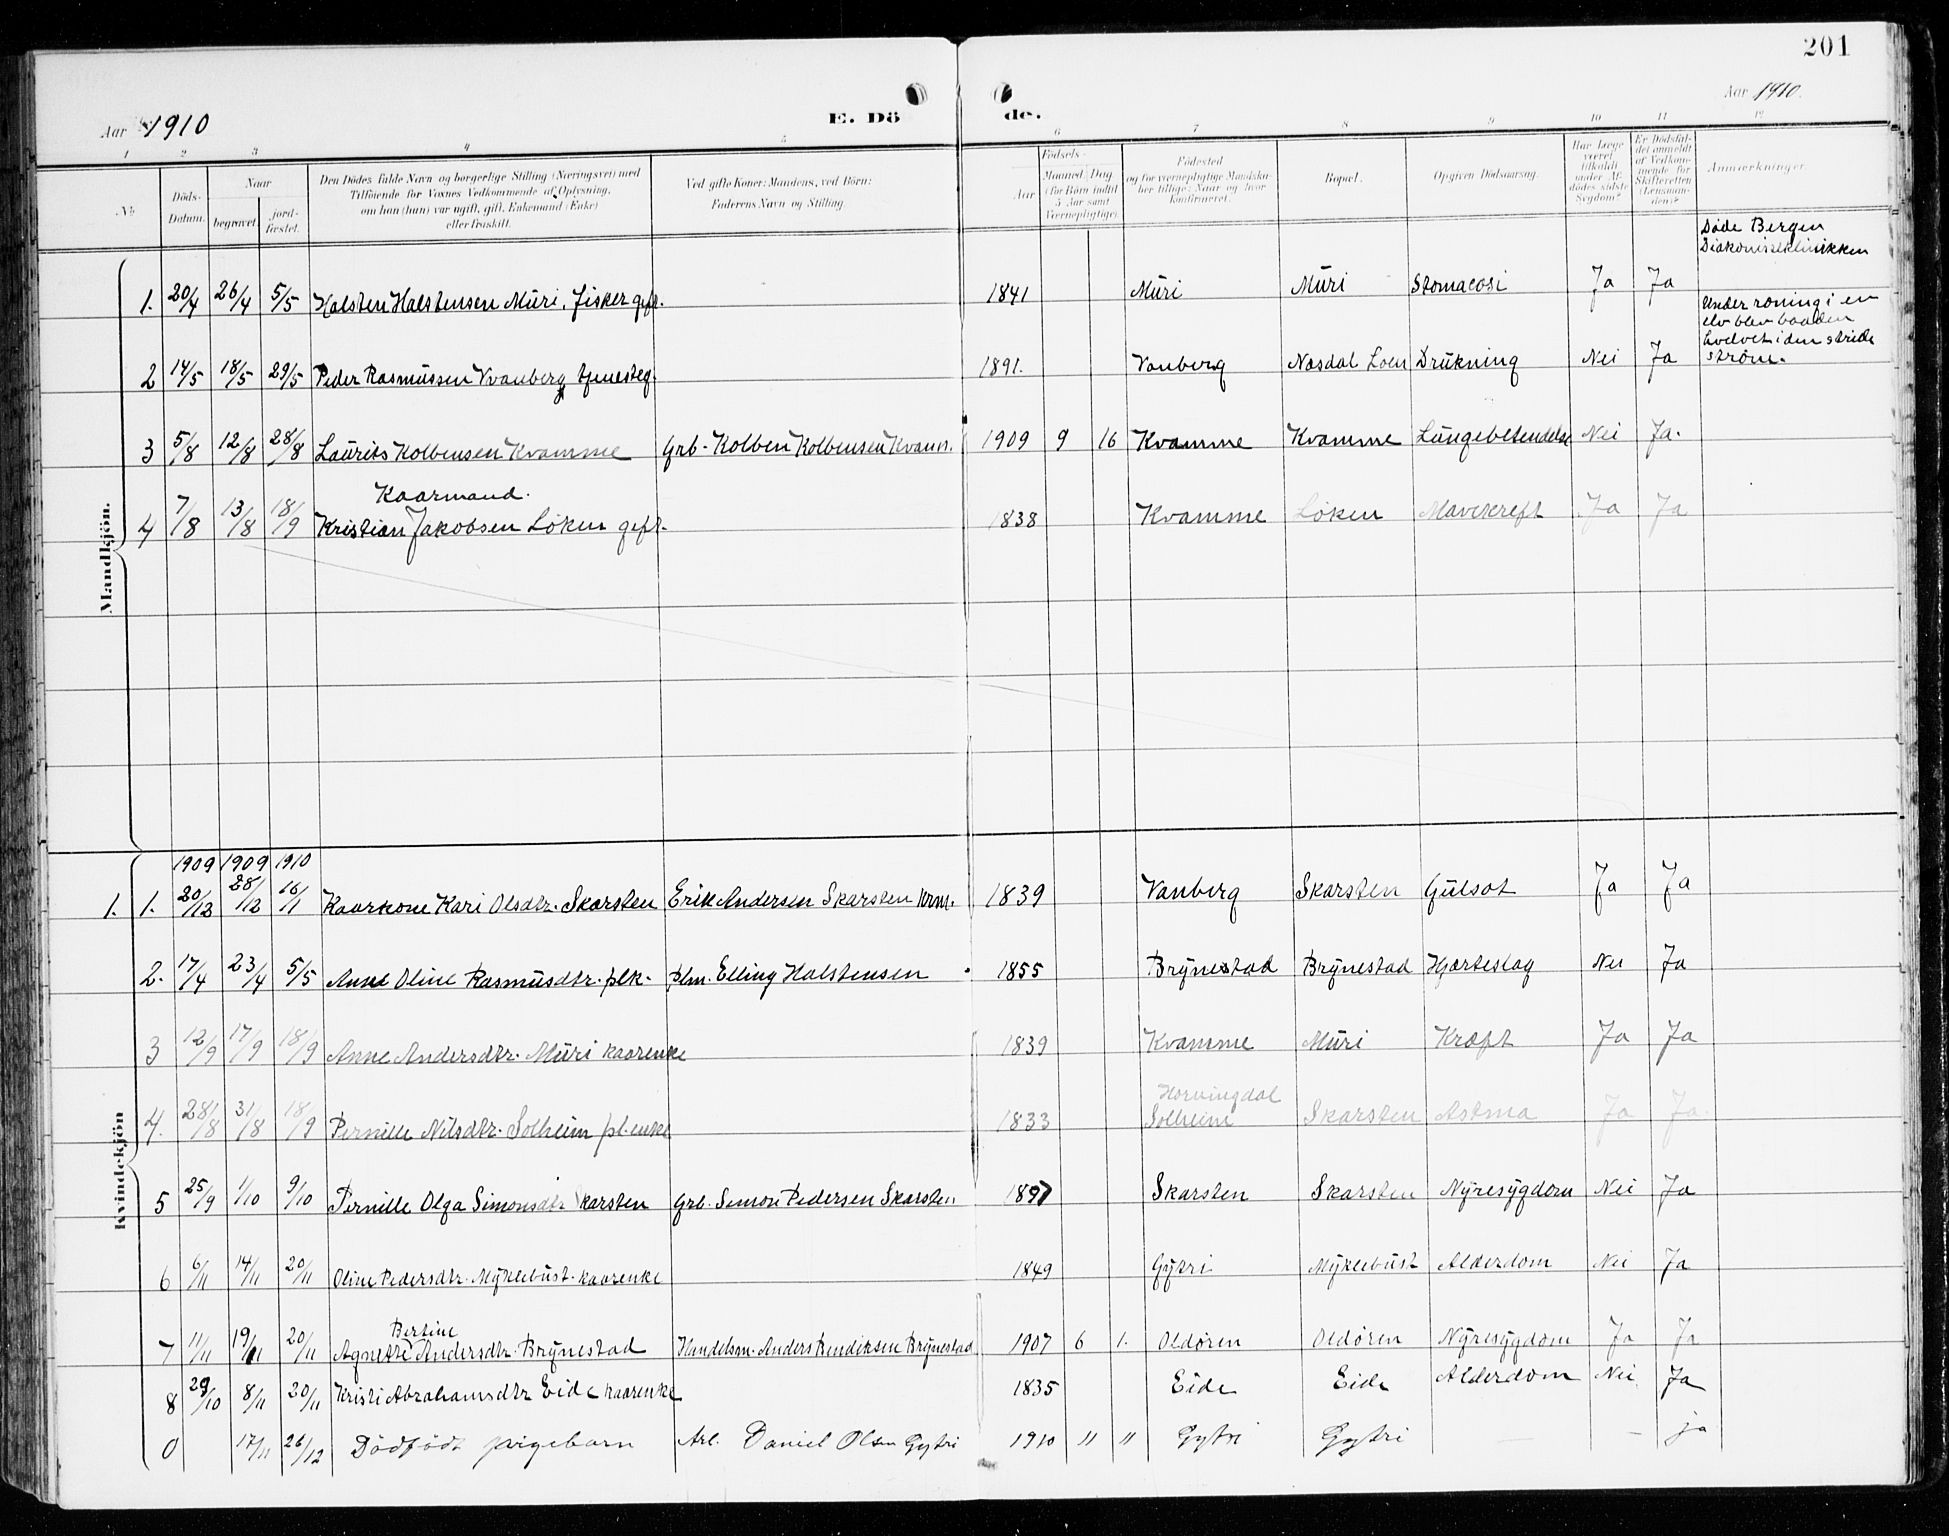 201
Aar 1910
E. Dö de.
Aar 1910.
1 2 3 4 5 6 7 8 9 10 11 12
No
Döds-Datum.
Naar
begravet.
jord-fæstet.
Den Dödes fulde Navn og borgerlige Stilling (Næringsvei) med
Tilföiende for Voxnes Vedkommende af Oplysning,
om han (hun) var ugift, gift, Enkemand (Enke)
eller fraskilt.
Ved gifte Koner: Mandens, ved Börn:
Faderens Navn og Stilling.
Födsels-
Aar
Maaned Dag
(for Börn indtil
5 Aar samt
Værnepligtige).
Födested
og for værnepligtige Mandska-
ber tillige: Naar og hvor
konfirmeret.
Bopæl.
Opgiven Dödsaarsag.
Har Læge
været
tilkaldt
under Af-
dödes sidste
Sygdom?
Er Dödsfal-
det anmeldt
af Vedkom-
mende for
Skifteretten
(Lensman-
den)?
Anmærkninger.
Mandkjön.
Døde Bergen
Diakonisseklinikken
1. 20/4 26/4 5/5 Halsten Halstensen Mūri, fisker gift. 1841 Mūri Mūri Stomacosi Ja Ja
Under roning i en
elv blev baaden
hvelvet i den stride
strøm.
2 14/5 18/5 29/5 Peder Rasmūssen Vvanberg tjenesteg. 1891. Vanberg Nosdal Loen Drūkning Nei Ja
3 5/8 12/8 28/8 Laūrits Kolbensen Kvamme Grb. Kolben Kolbensen Kvam. 1909 9 16 Kvamme Kvamme Lūngebetendelse Nei Ja.
Kaarmand.
4 7/8 13/8 18/9 Kristian Jakobsen Løken gift. 1838 Kvamme Løken Mavekreft Ja Ja
Kvindekjön
1909 1909 1910
1. 1. 20/12 28/12 16/1 Kaarkone Kari Olsdtr. Skarsten Erik Andersen Skarsten krm. 1839 Vanberg Skarsten Gūlsot Ja Ja
2. 17/4 23/4 5/5 Anne Oline Rasmūsdtr. plk. plm. Elling Halstensen 1855 Brȳnestad Brȳnestad Hjærteslag Nei Ja
3 12/9 17/9 18/9 Anne Andersdtr. Mūri kaarenke 1839 Kvamme Mūri Kræft Ja Ja
4. 28/8 31/8 18/9 Pernille Nilsdtr. Solheim pl. enke 1833 Horningdal Solheim Skarsten Astma Ja Ja.
5 25/9 1/10 9/10 Pernille Olga Simonsdtr Skarsten Grb. Simon Pedersen Skarsten 1897 Skarsten Skarsten Nȳresȳgdom Nei Ja
6 6/11 14/11 20/11 Oline Pedersdtr. Mȳklebūst. kaarenke 1849 Gȳtri Mȳklebūst Alderdom Nei Ja
Bertine
7 11/11 19/11 20/11 Agnette Andersdtr. Brȳnestad Handelsm. Anders Bendiksen Brȳnestad 1907 6 1. Oldøren Oldøren Nȳresȳgdom Ja Ja
8 29/10 8/11 20/11 Kristi Abrahamsdtr Eide kaarenke 1835 Eide Eide Alderdom Nei Ja
0 17/11 26/12 Dødfødt pigebarn Arb. Daniel Olsen Gytri 1910 " " Gytri Gytri — — ja